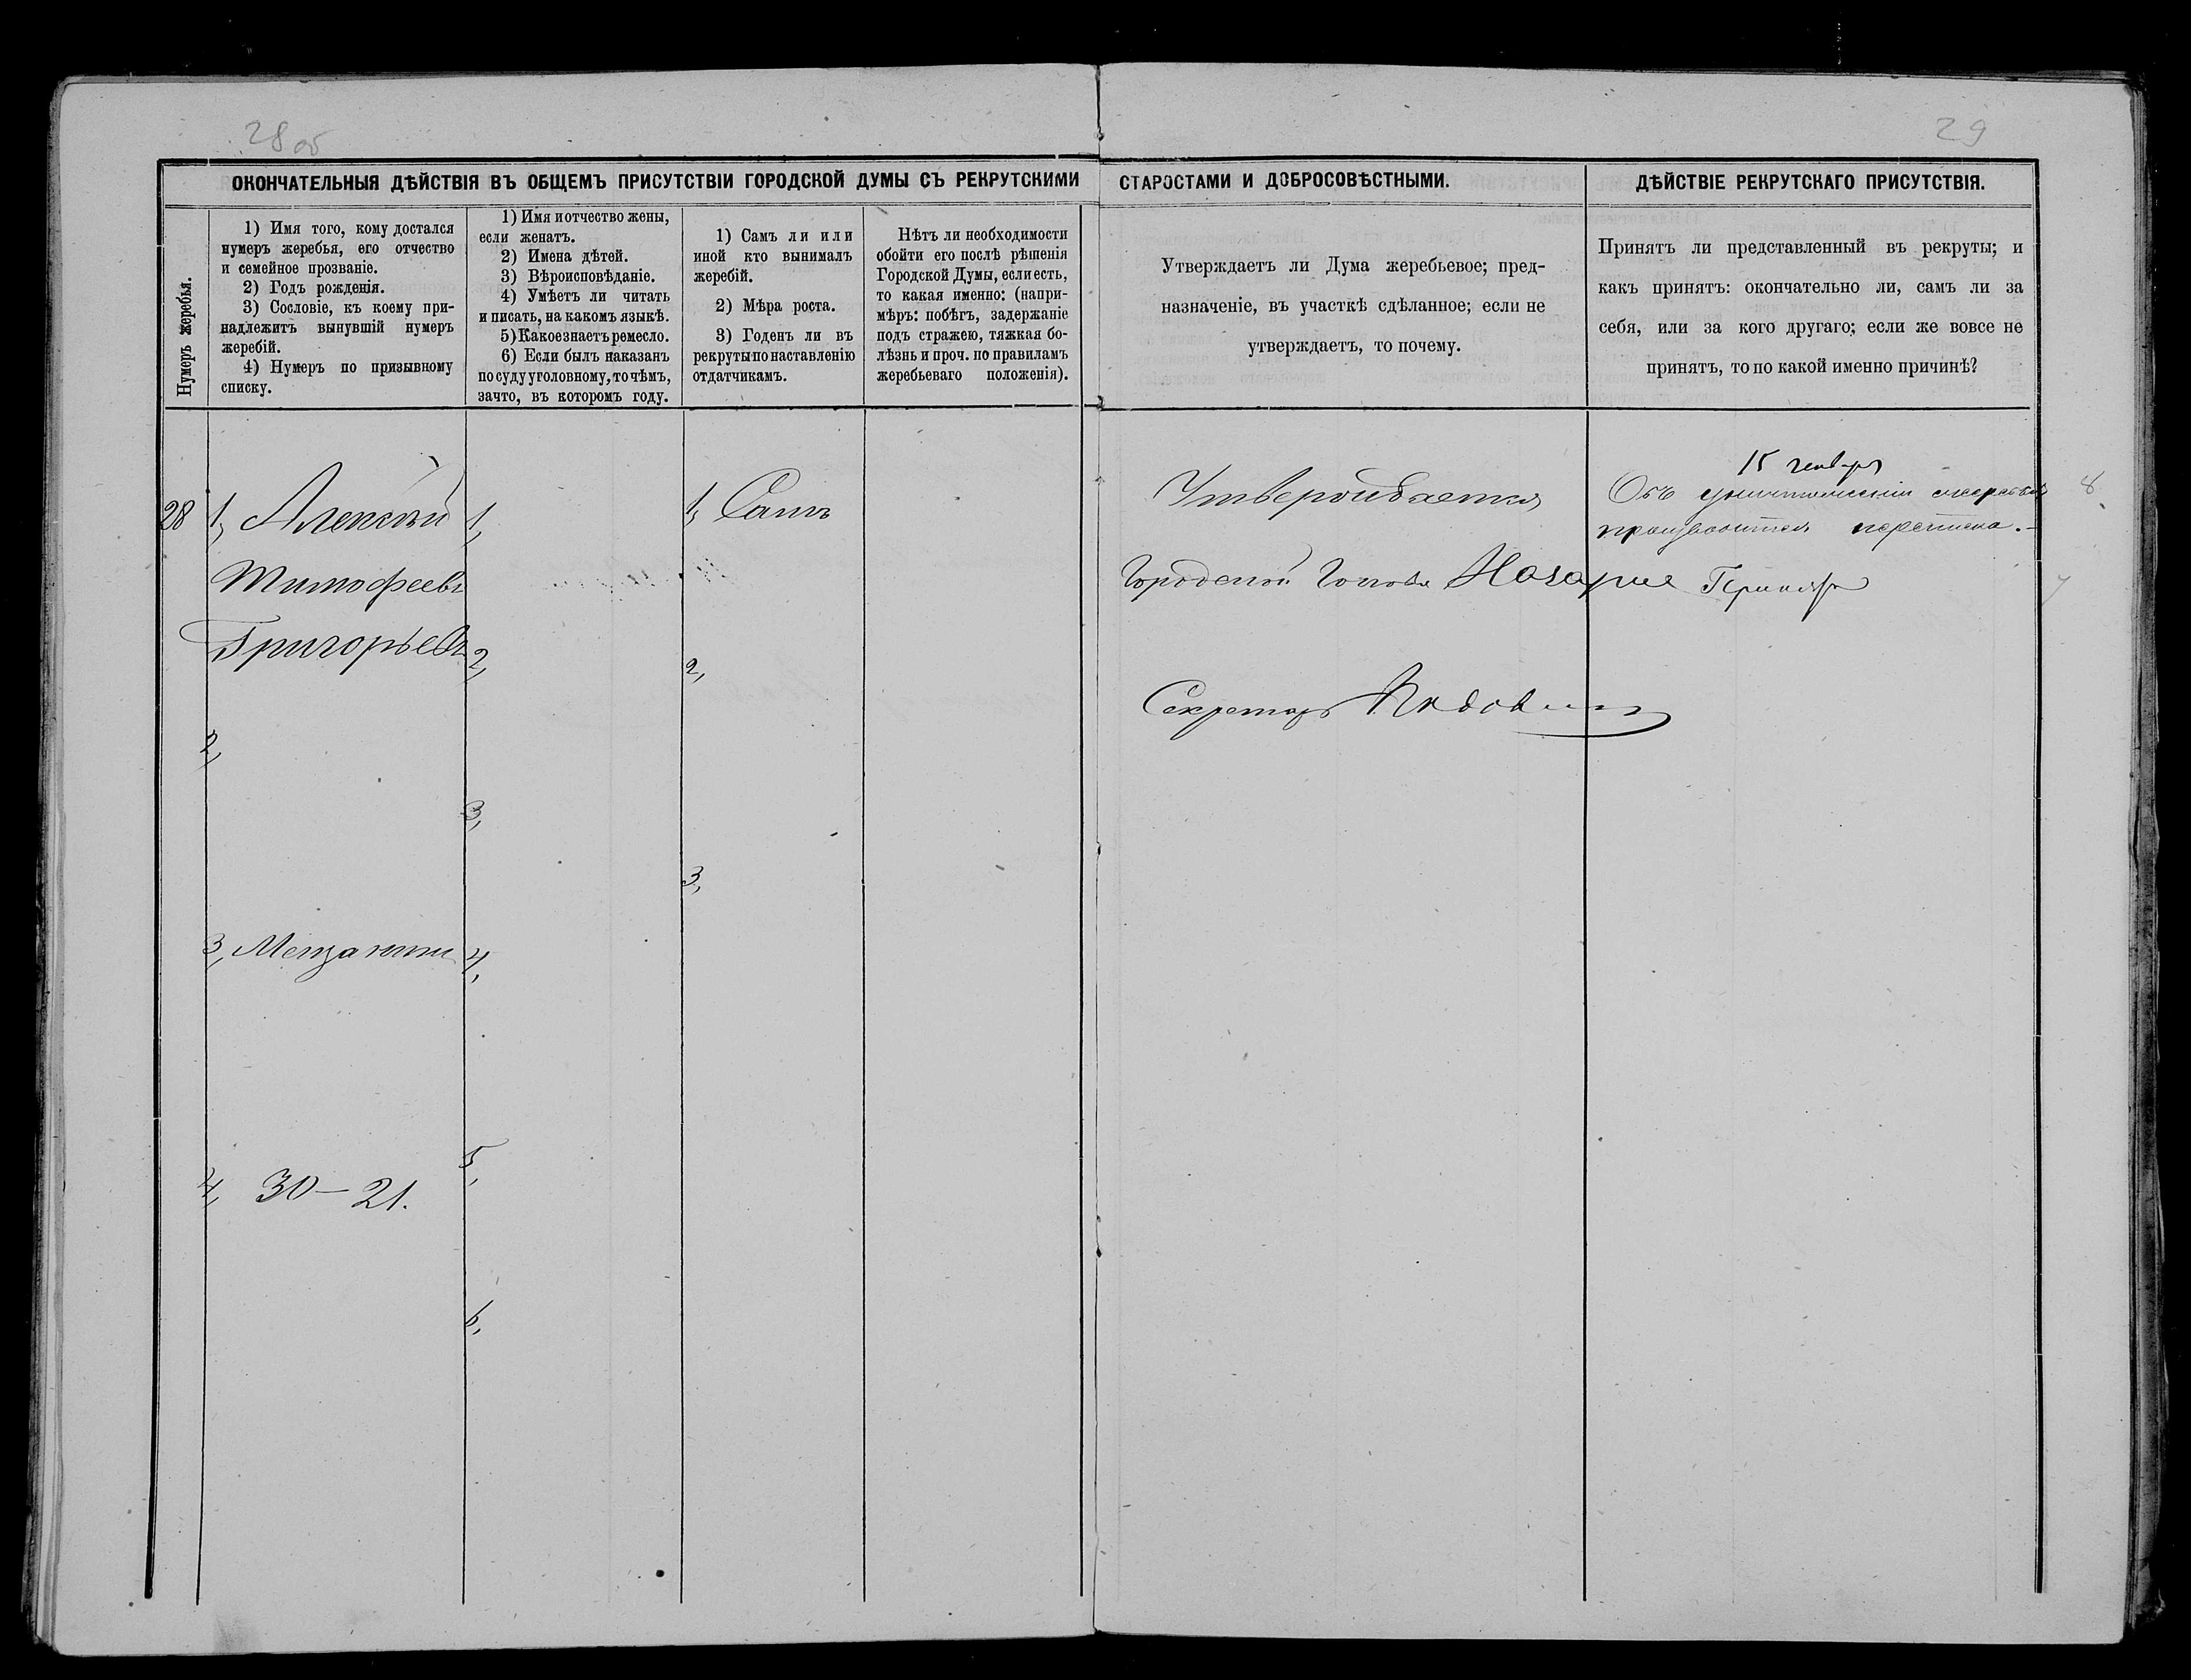 28 об
29
ОКОНЧАТЕЛЬНЫЯ ДѢЙСТВІЯ ВЪ ОБЩЕМЪ ПРИСУТСТВІИ ГОРОДСКОЙ ДУМЫ СЪ РЕКРУТСКИМИ СТАРОСТАМИ И ДОБРОСОВѢСТНЫМИ.
ДѢЙСТВІЕ РЕКРУТСКАГО ПРИСУТСТВІЯ.
Нумеръ жеребья.
1) Имя того, кому достался
нумеръ жеребья, его отчество
и семейное прозваніе.
2) Годъ рожденія.
3) Сословіе, къ коему при-
надлежитъ вынувшій нумеръ
жеребій.
4) Нумеръ по призывному
списку.
1) Имя и отчество жены,
если женатъ.
2) Имена дѣтей.
3) Вѣроисповѣданіе.
4) Умѣетъ ли читать
и писать, на какомъ языкѣ.
5) Какое знаетъ ремесло.
6) Если былъ наказанъ
по суду уголовному, то чѣмъ,
за что, въ которомъ году.
1) Самъ ли или
иной кто вынималъ
жеребій.
2) Мѣра роста.
3) Годенъ ли въ
рекруты по наставленію
отдатчикамъ.
Нѣтъ ли необходимости
обойти его послѣ рѣшенія
Городской Думы, если есть,
то какая именно: (напри-
мѣръ: побѣгъ, задержаніе
подъ стражею, тяжкая бо-
лѣзнь и проч. по правиламъ
жеребьеваго положенія).
Утверждаетъ ли Дума жеребьевое; пред-
назначеніе, въ участкѣ сдѣланное; если не
утверждаетъ, то почему.
Принятъ ли представленный въ рекруты; и
какъ принятъ: окончательно ли, самъ ли за
себя, или за кого другаго; если же вовсе не
принятъ, то по какой именно причинѣ?
28
1, Алексѣй
Тимофеевъ
Григорьевъ
2,
3, Мещанинъ
4, 30 — 21.
1,
2,
3,
4,
5,
6,
1, Самъ
2,
3,
Утверждается
Городской Голова
Секретарь
15 генваря
Объ уничтоженіи жеребья
производится переписка. —
8